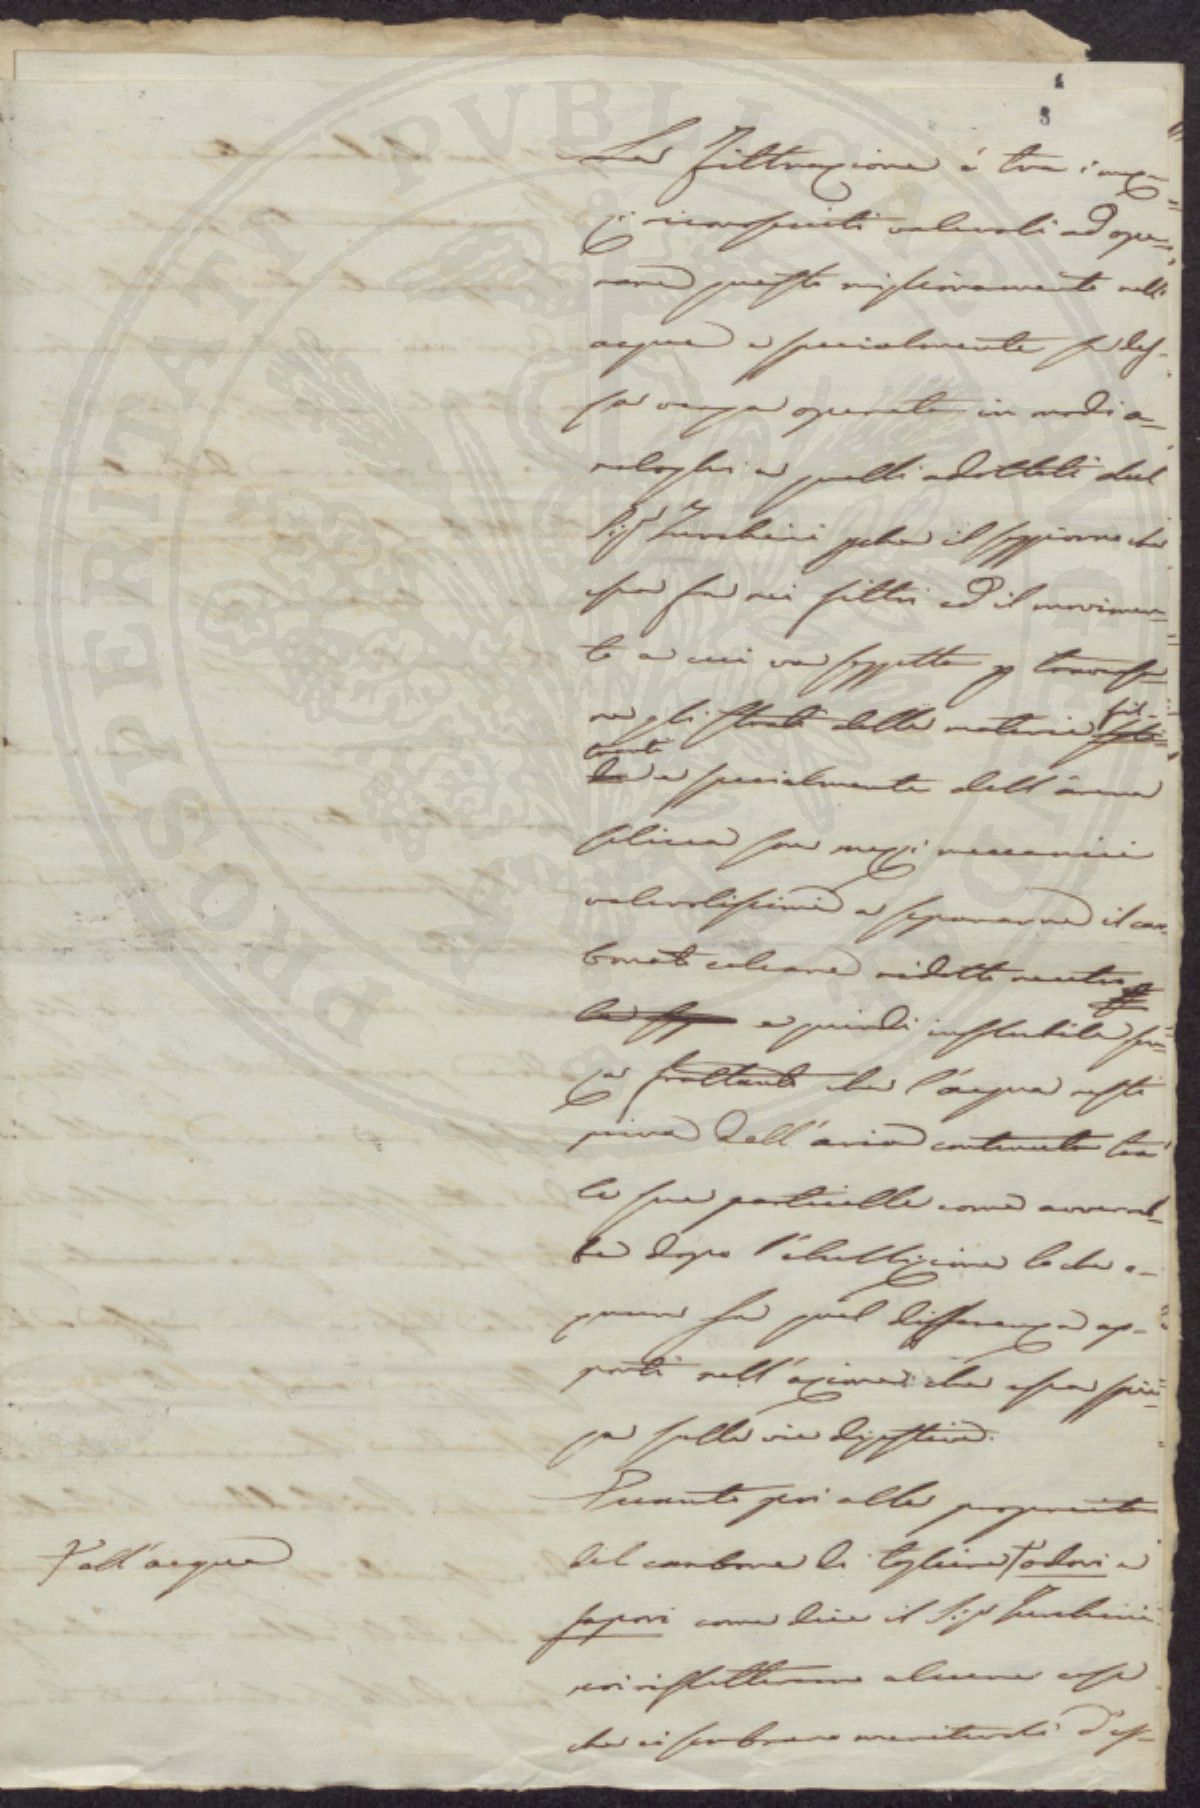 PROSPERITATI PVBLICAE AVGENDAE
1
3
La Filtrazione è tra i mez-
zi riconosciuti valevoli ad ope-
rare questo miglioramento nell'
acqua e specialmente se des-
sa venga operata in modi a-
naloghi a quelli adottati dal
Sigr Zucchini che il soggiorno che
essa fa nei filtri ed il movimen-
to a cui va soggetta p traversa-
re gli strati delle materie fil-
tranti e specialmente dell'arena
silicea son mezzi meccanici
valevolissimi a separarne il car-
bonato calcare ridotto neutro
e quindi insolubile sen-
za frattanto che l'acqua resti
priva dell'aria contenuta tra
le sue particelle come avvereb-
be dopo l'ebullizione lo che o-
gnun sa qual differenza ap-
porti nell'azione che essa spie-
ga sulle vie digestive.
Quanto poi alle proprietà
del carbone di togliere odori e
all'acqua
sapori come dice il Sigr Zucchini
noi rifletteremo alcune cose
che ci sembrano meritevoli d'es-